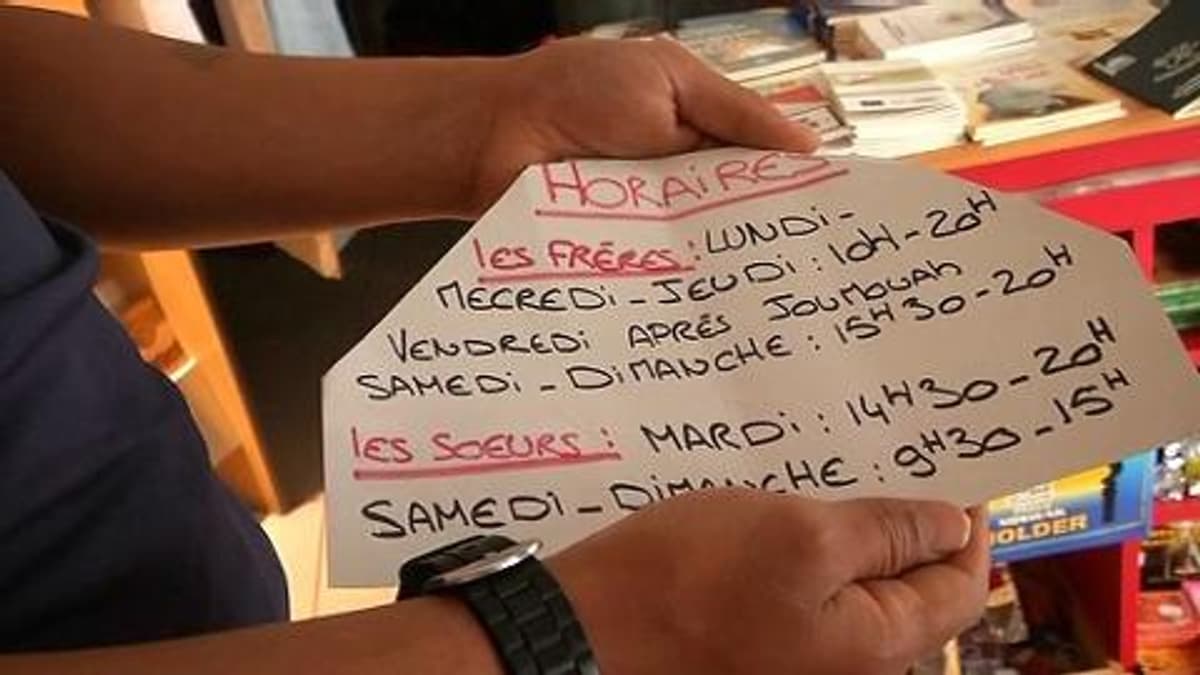 HORAIRES
les FRÉRES : LUNDi-
MECREDi - JEUDi : 10H - 20H
VENDREDi APRÉS JOUMOUAH
SAMEDi - DiMANCHE : 15H30 - 20H
les SOEURS : MARDi : 14H30 - 20H
SAMEDi - DiMANCHE : 9H30 - 15H
HOLDER